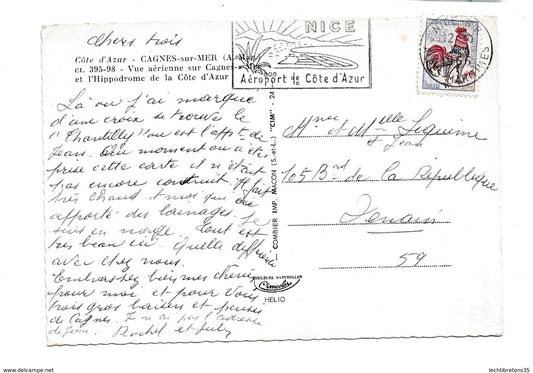 chers trois
Côte d'Azur - CAGNES-sur-MER (A.-Mar.)
ct. 395-98 - Vue aérienne sur Cagnes-s-Mer
et l'Hippodrome de la Côte d'Azur
NICE
Aéroport de la Côte d'Azur
Là où j'ai marqué
d'une croix se trouve le
"Chantilly" ou est l'appt de
Jean. Au moment ou a été
prise cette carte il n'était
pas encore construit. Il fait
très chaud et moi qui ai
apporté des lainages. Je
suis en nage. Tout est
très beau ici quelle différence
avec chez nous.
Embrassez bien mes chéris
pour moi et pour vous
trois gros baisers et pensées
de Cagnes. Je n'ai pas l'adresse
de Jean. Rachel et July
COMBIER IMP. MACON (S.-et-L.) "CIM"
COULEURS NATURELLES
Cimcolor
HELIO
Mme et Melle Leguime
et Jean
105 Bard de la République
Denain
59
www.delcampe.net
lechtibretons35